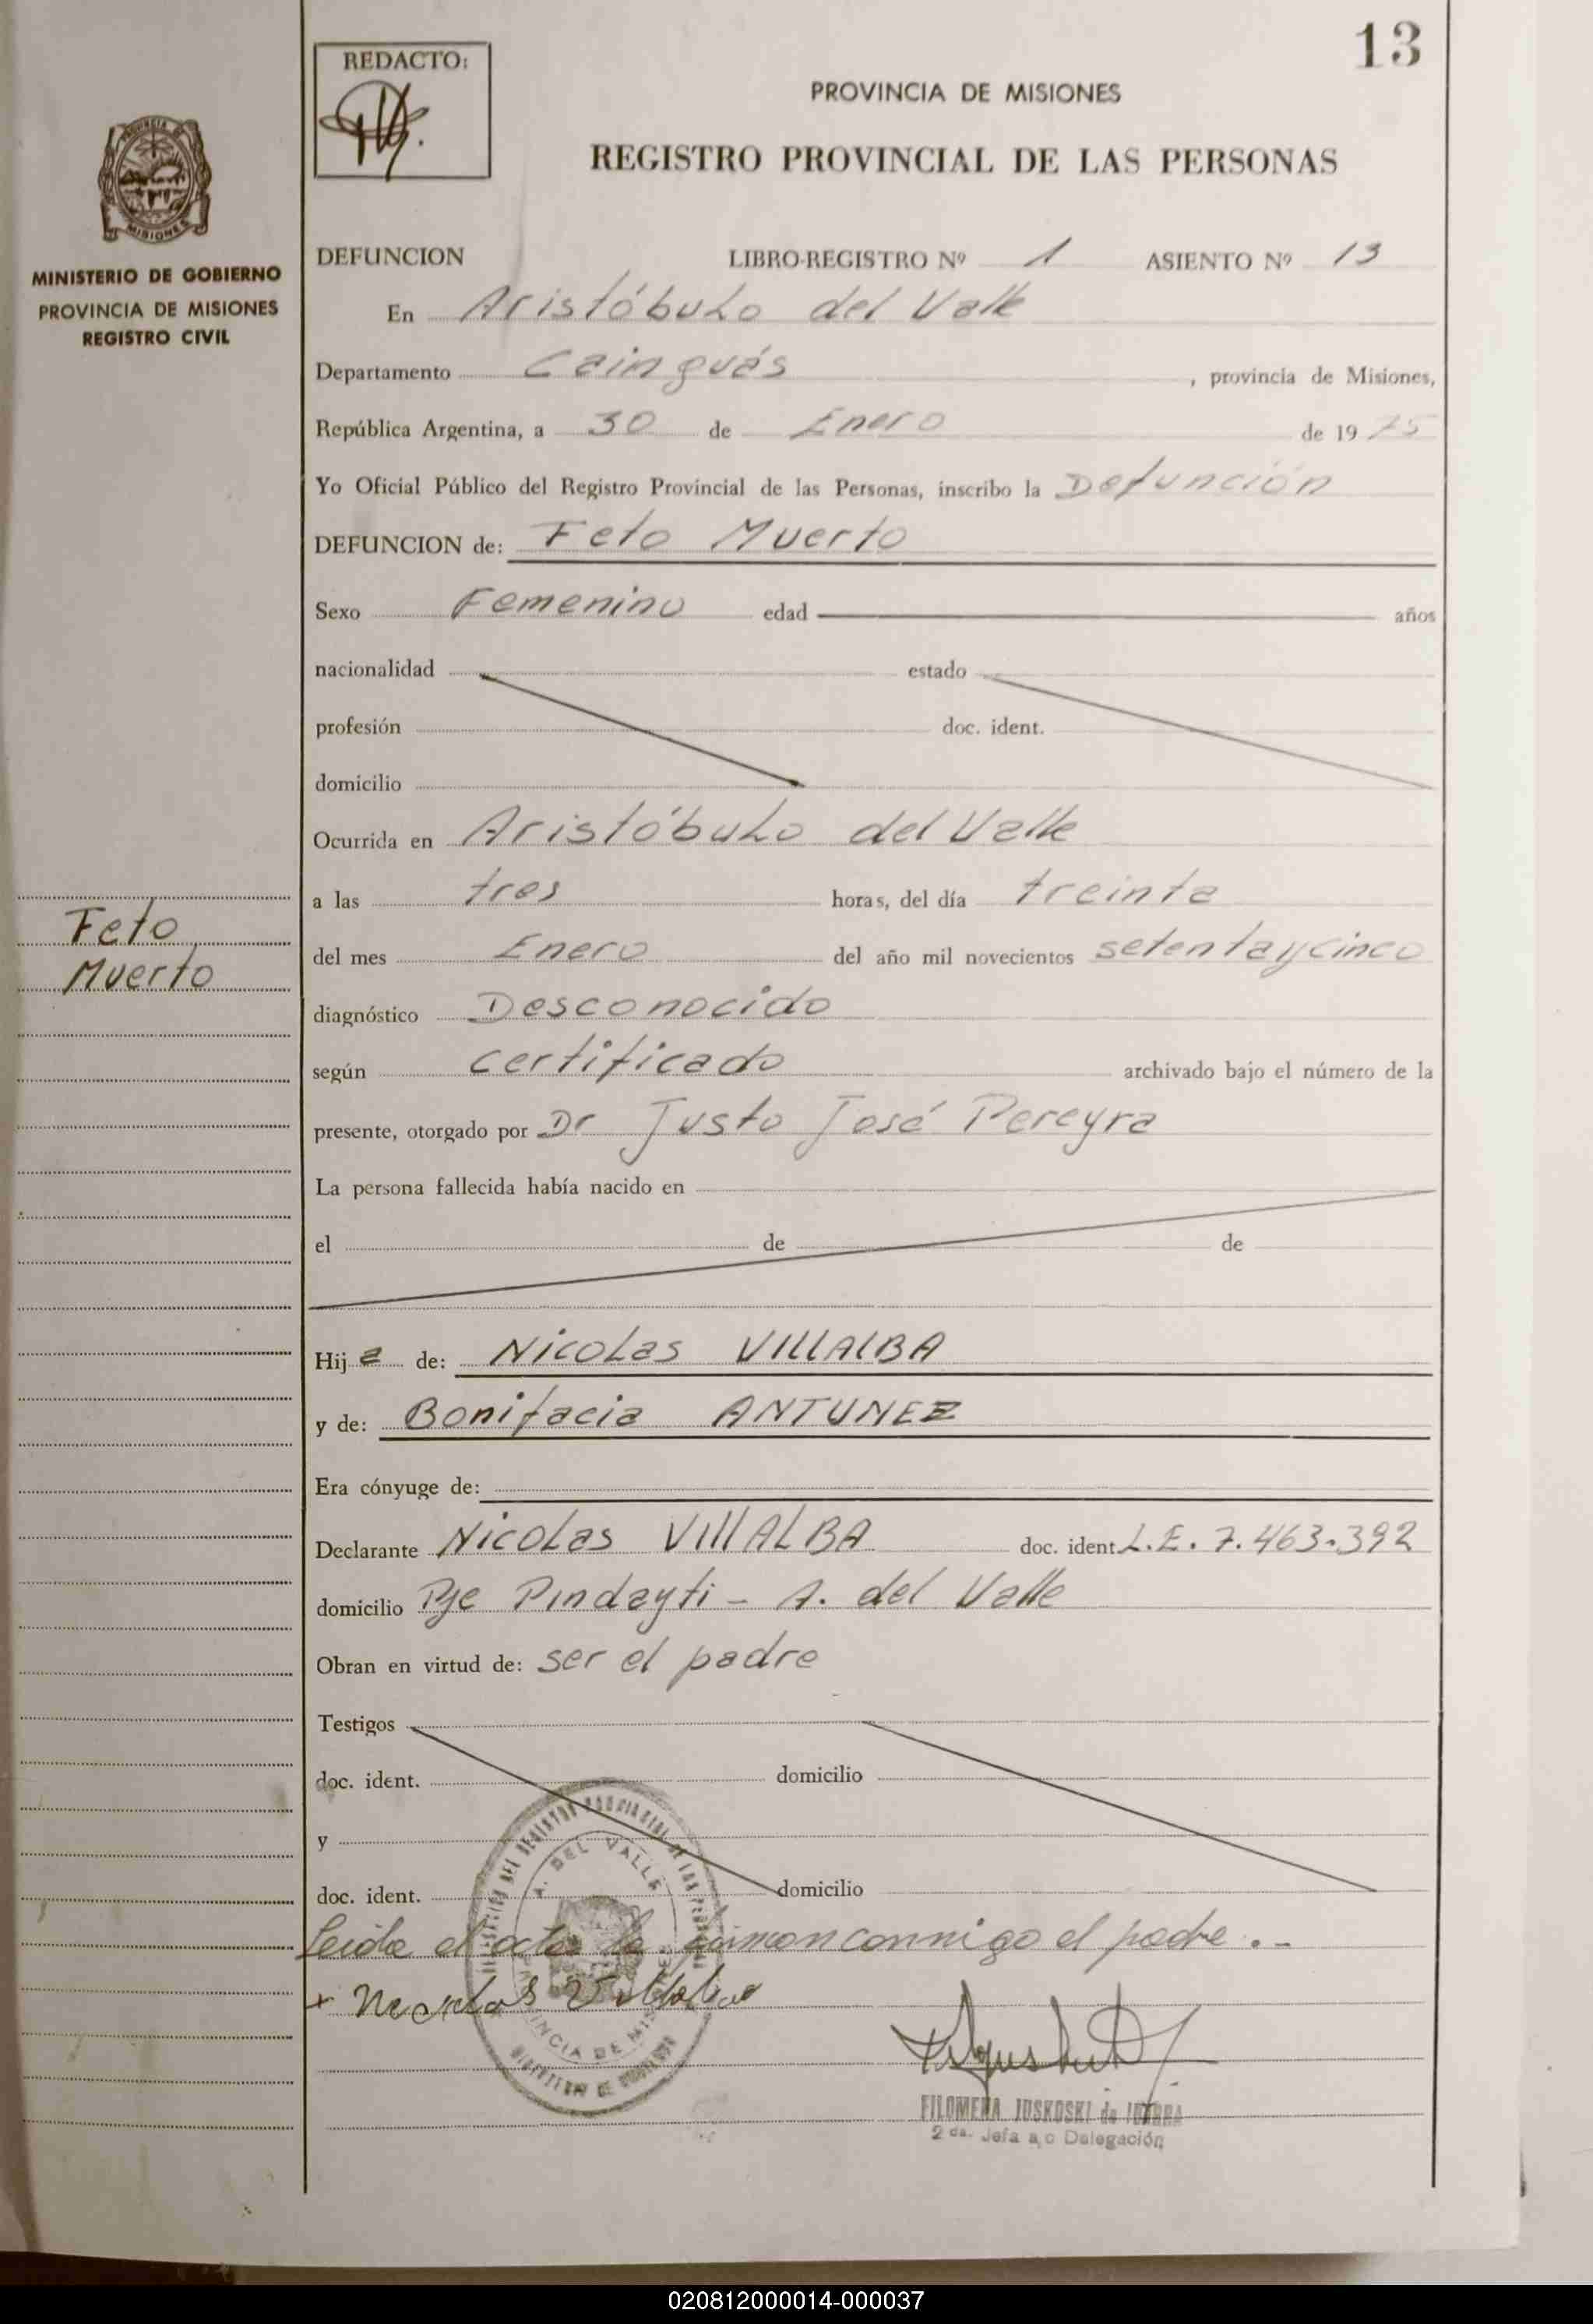 13
REDACTO:
PROVINCIA DE MISIONES
REGISTRO PROVINCIAL DE LAS PERSONAS
MISIONES
MINISTERIO DE GOBIERNO
PROVINCIA DE MISIONES
REGISTRO CIVIL
DEFUNCION LIBRO-REGISTRO Nº 1 ASIENTO Nº 13
En Aristóbulo del Valle
Departamento Cainguás, provincia de Misiones,
República Argentina, a 30 de Enero de 1975
Yo Oficial Público del Registro Provincial de las Personas, inscribo la Defunción
DEFUNCION de: Feto Muerto
Sexo Femenino edad años
nacionalidad estado
profesión doc. ident.
domicilio
Ocurrida en Aristóbulo del Valle
a las tres horas, del día treinta
Feto
Muerto
del mes Enero del año mil novecientos setentaycinco
diagnóstico Desconocido
según certificado archivado bajo el número de la
presente, otorgado por Dr Justo José Pereyra
La persona fallecida había nacido en
el de de
Hija de: Nicolas VILLALBA
y de: Bonifacia ANTUNEZ
Era cónyuge de:
Declarante Nicolas VILLALBA doc. ident. L.E. 7.463.392
domicilio Pje Pindayti - A. del Valle
Obran en virtud de: ser el padre
Testigos
doc. ident. domicilio
y
doc. ident. domicilio
Leida el acta la firman conmigo el padre.-
A. DEL VALLE
PROVINCIA DE MISIONES
+ Nicolas Villalba
FILOMENA IUSKOSKI de
2 da. Jefa a/c Delegación
020812000014-000037